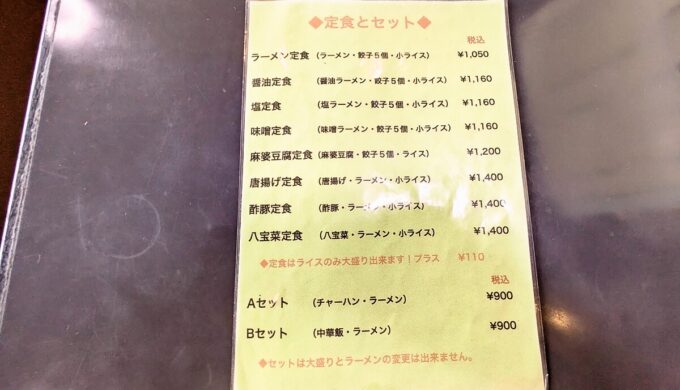 ◆定食とセット◆
税込
ラーメン定食 （ラーメン・餃子５個・小ライス） ¥1,050
醤油定食 （醤油ラーメン・餃子５個・小ライス） ¥1,160
塩定食 （塩ラーメン・餃子５個・小ライス） ¥1,160
味噌定食 （味噌ラーメン・餃子５個・小ライス） ¥1,160
麻婆豆腐定食（麻婆豆腐・餃子５個・ライス） ¥1,200
唐揚げ定食 （唐揚げ・ラーメン・小ライス） ¥1,400
酢豚定食 （酢豚・ラーメン・小ライス） ¥1,400
八宝菜定食 （八宝菜・ラーメン・小ライス） ¥1,400
◆定食はライスのみ大盛り出来ます！プラス ¥110
税込
Aセット （チャーハン・ラーメン） ¥900
Bセット （中華飯・ラーメン） ¥900
◆セットは大盛りとラーメンの変更は出来ません。